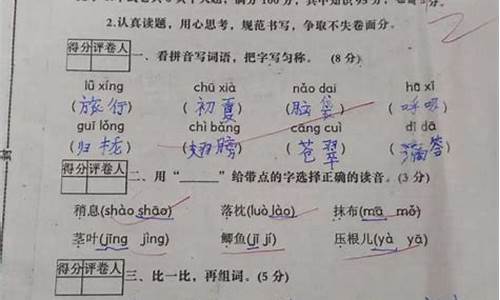 2.认真读题,用心思考,规范书写,争取不失卷面分。
得分 评卷人
一、看拼音写词语,把字写匀称。(8分)
lǚ xíng chū xià nǎo dai hū xī
(旅行) (初夏) (脑袋) (呼吸)
guī lǒng chì bǎng cāng cuì dī dā
(归拢) (翅膀) (苍翠) (滴答)
得分 评卷人
二、用“______”给带点的字选择正确的读音。(3分)
稍息(shào shāo) 落枕(luò lào) 抹布(mā mǒ)
茎叶(jīng jìng) 鲫鱼(jǐ jí) 压根儿(yà yā)
得分 评卷人
三、比一比,再组词。(5分)